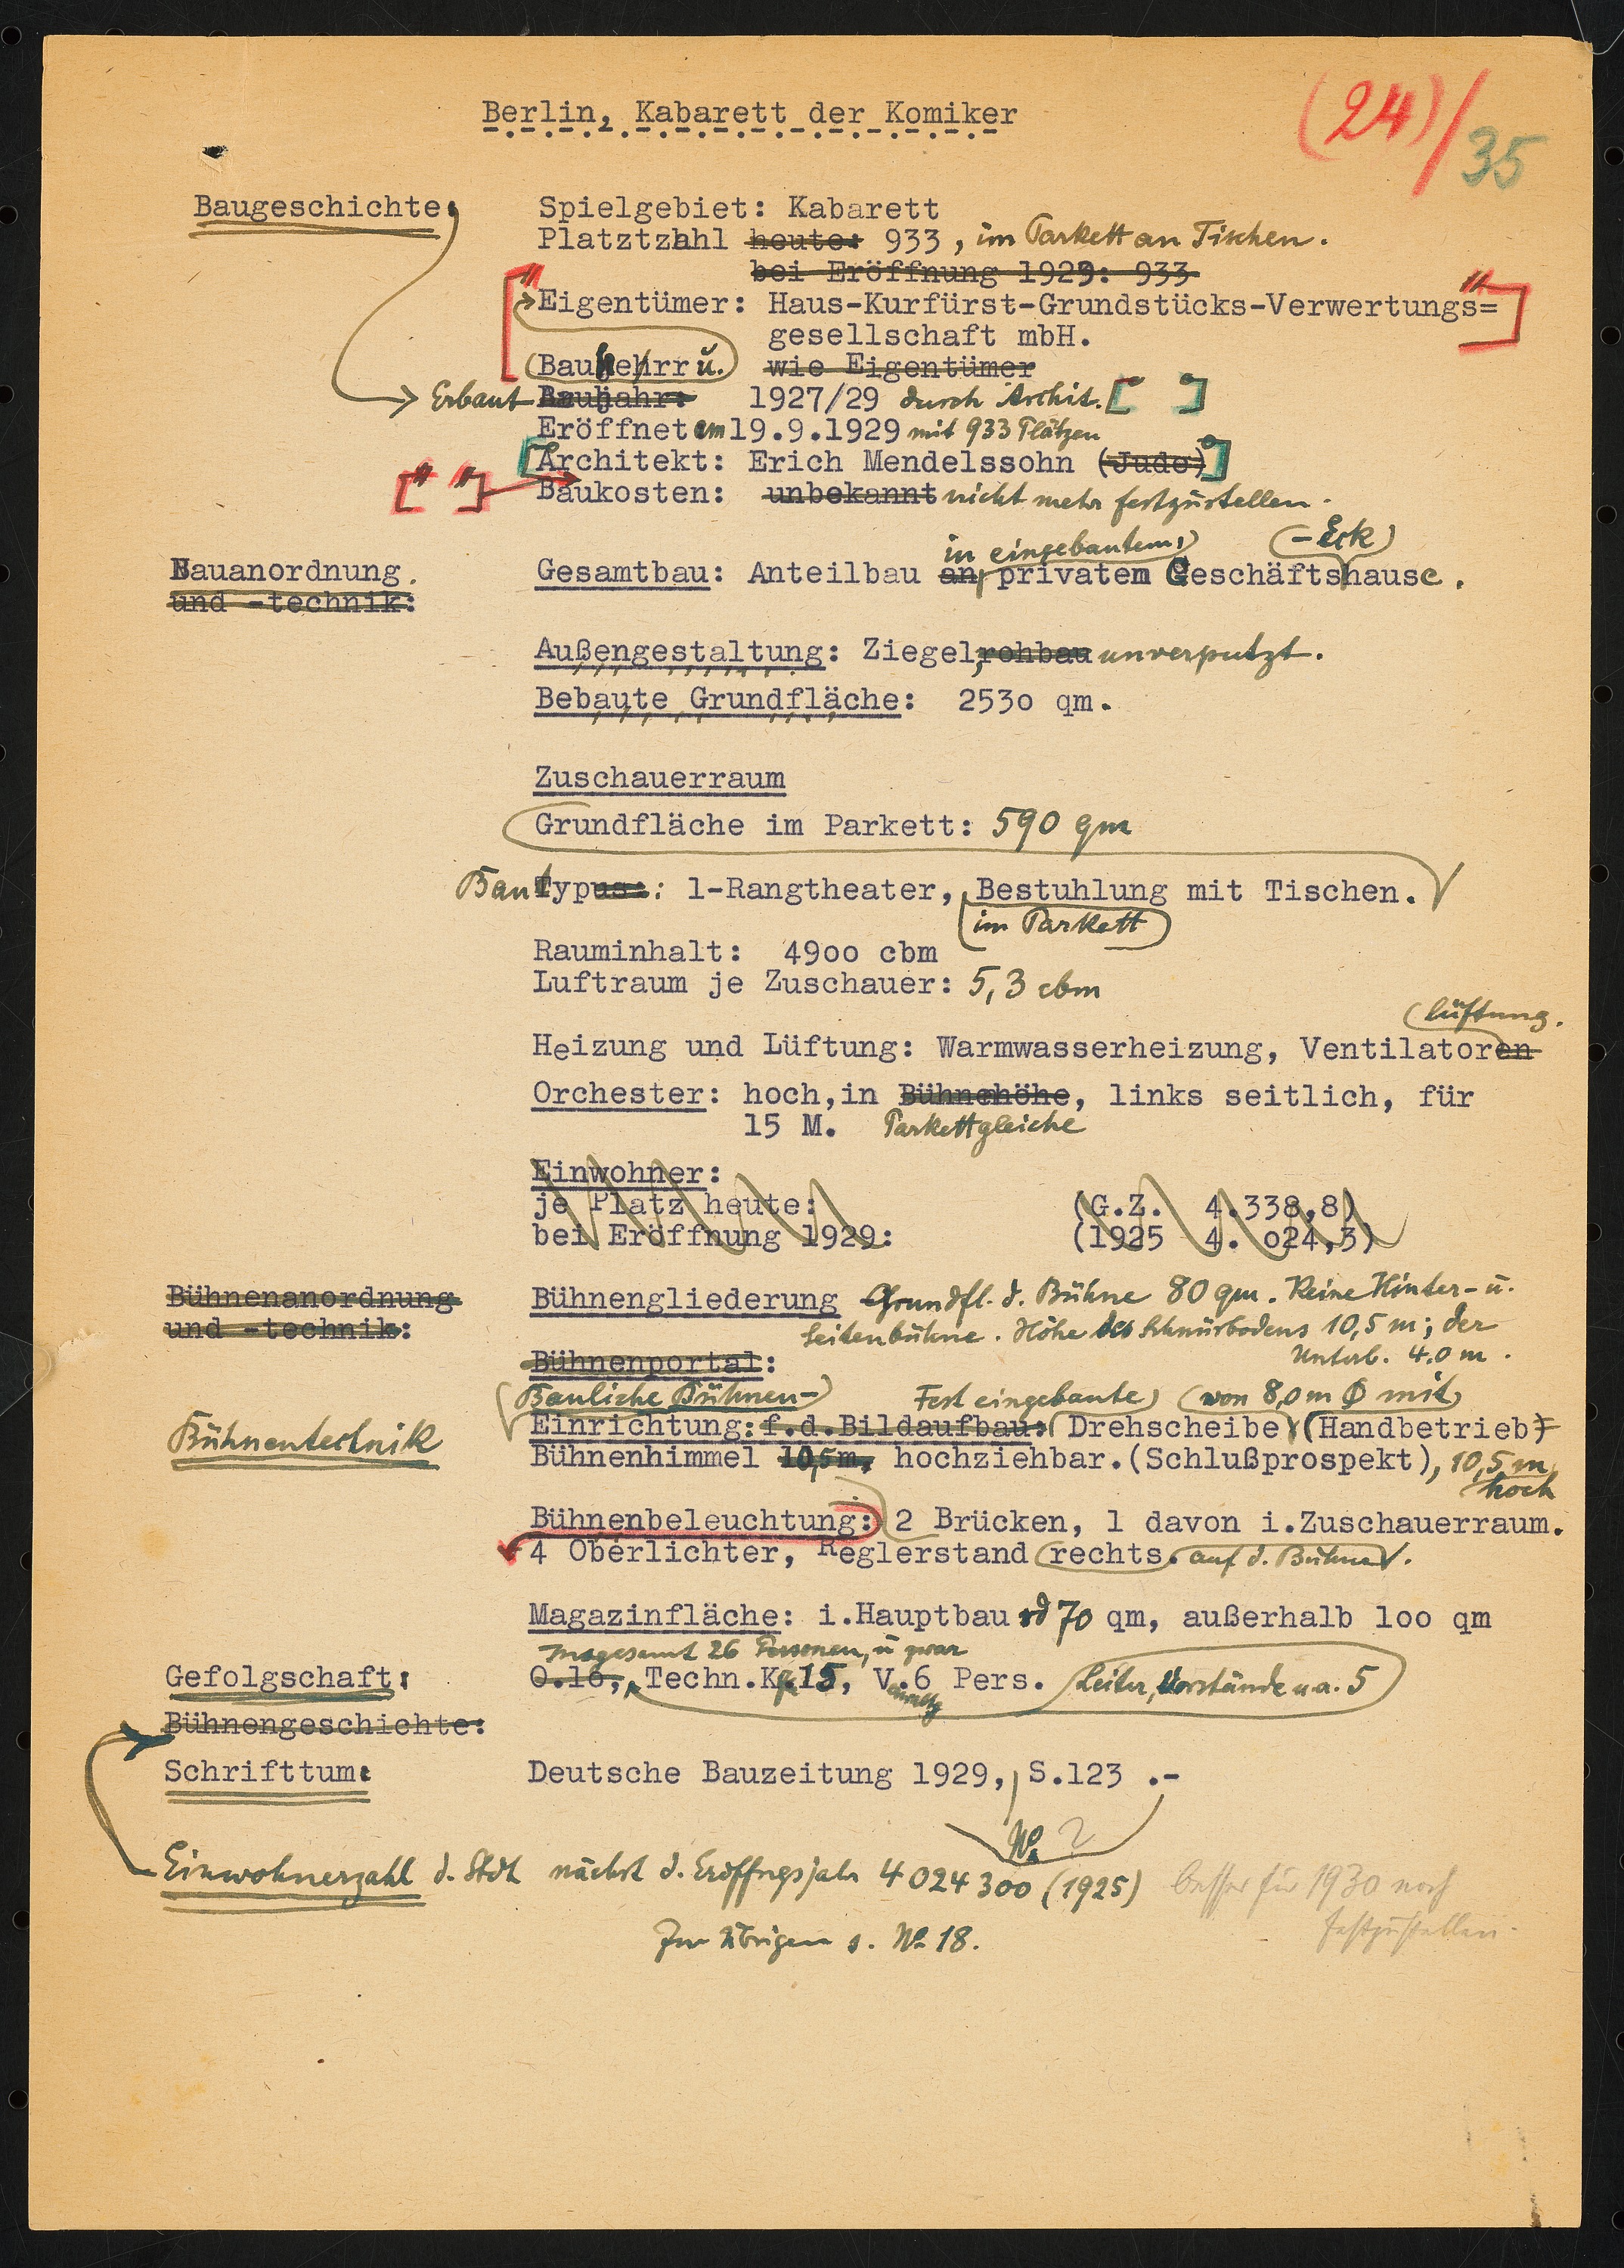 Berlin, Kabarett der Komiker
(24)/35
Baugeschichte. Spielgebiet: Kabarett
Platztzahl heute: 933, im Parkett an Tischen.
bei Eröffnung 1929: 933
Eigentümer: Haus-Kurfürst-Grundstücks-Verwertungs=
gesellschaft mbH.
Bauherr u. wie Eigentümer
Erbaut Baujahr: 1927/29 durch Archit. [ ]
Eröffnet am 19.9.1929 mit 933 Plätzen
[Architekt: Erich Mendelssohn (Jude)]
[" "] Baukosten: unbekannt nicht mehr festzustellen.
in eingebautem, -Eck
Bauanordnung. Gesamtbau: Anteilbau an privatem Geschäftshause.
und -technik:
Außengestaltung: Ziegel, rohbau unverputzt.
Bebaute Grundfläche: 2530 qm.
Zuschauerraum
Grundfläche im Parkett: 590 qm
Bau Typus: : 1-Rangtheater, Bestuhlung mit Tischen.
im Parkett
Rauminhalt: 4900 cbm
Luftraum je Zuschauer: 5,3 cbm
lüftung.
Heizung und Lüftung: Warmwasserheizung, Ventilatoren
Orchester: hoch, in Bühnehöhe, links seitlich, für
15 M. Parkettgleiche
Einwohner:
je Platz heute: (G.Z. 4.338,8)
bei Eröffnung 1929: (1925 4. 024,3)
Bühnenanordnung Bühnengliederung Grundfl. d. Bühne 80 qm. Keine Hinter- u.
und -technik: Seitenbühne. Höhe des Schnürbodens 10,5 m; der
Unterb. 4.0 m.
Bühnenportal:
Bauliche Bühnen- Fest eingebaute von 8,0 m Ø mit
Bühnentechnik Einrichtung: f.d.Bildaufbau: Drehscheibe (Handbetrieb)
Bühnenhimmel 10,5m, hochziehbar.(Schlußprospekt), 10,5 m
hoch
Bühnenbeleuchtung: 2 Brücken, 1 davon i.Zuschauerraum.
4 Oberlichter, Reglerstand rechts. auf d. Bühne.
Magazinfläche: i.Hauptbau rd 70 qm, außerhalb 100 qm
Insgesamt 26 Personen, u zwar
Gefolgschaft: O.16, Techn.K. 15, V.6 Pers. Leiter, Vorstände u.a. 5
Bühnengeschichte:
Schrifttum: Deutsche Bauzeitung 1929, S.123 .-
No ?
Einwohnerzahl d. Stdt nächst d. Eröffngsjahr 4 024 300 (1925) besser für 1930 noch
festzustellen.
Im Übrigen s. No 18.